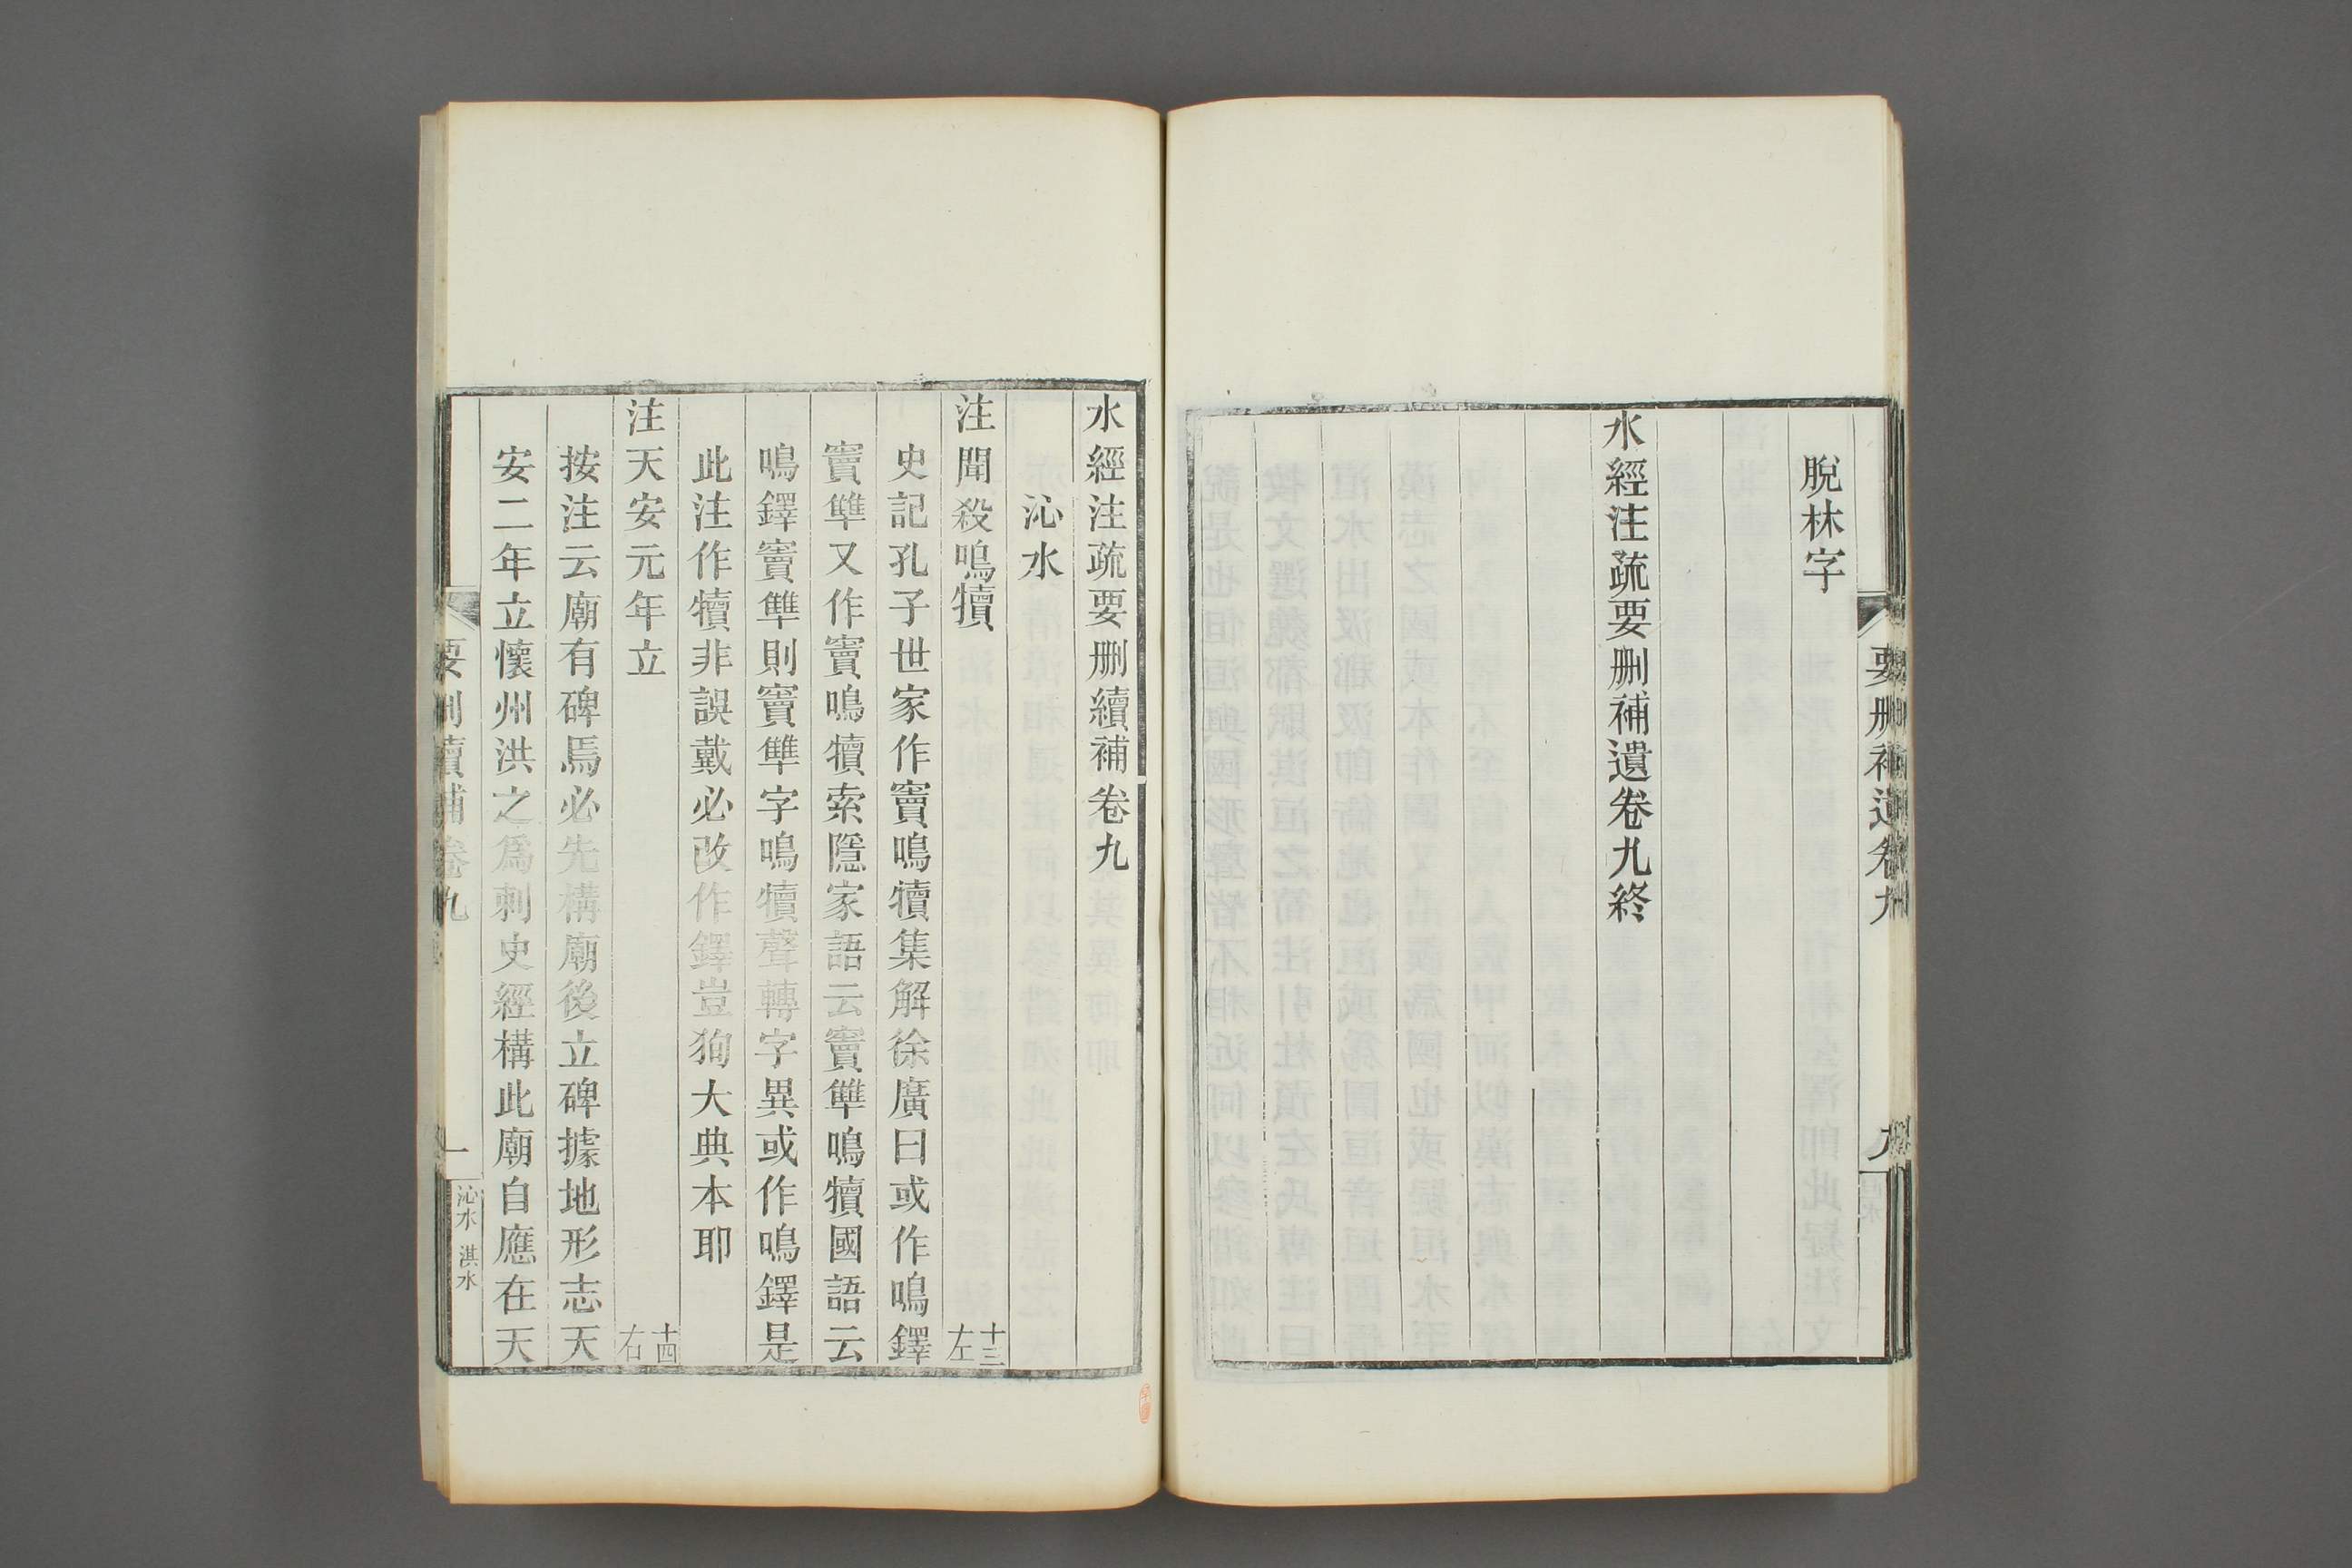 脫林字
水經注疏要刪補遺卷九終
要刪補遺卷九
九
水經注疏要刪續補卷九
沁水
注聞殺鳴犢
十三左
史記孔子世家作竇鳴犢集解徐廣曰或作鳴鐸
竇犨又作竇鳴犢索隱家語云竇犨鳴犢國語云
鳴鐸竇犨則竇犨字鳴犢聲轉字異或作鳴鐸是
此注作犢非誤戴必改作鐸豈狥大典本耶
注天安元年立
十四右
按注云廟有碑焉必先構廟後立碑據地形志天
安二年立懷州洪之爲刺史經構此廟自應在天
要刪續補卷九
一
沁水 淇水